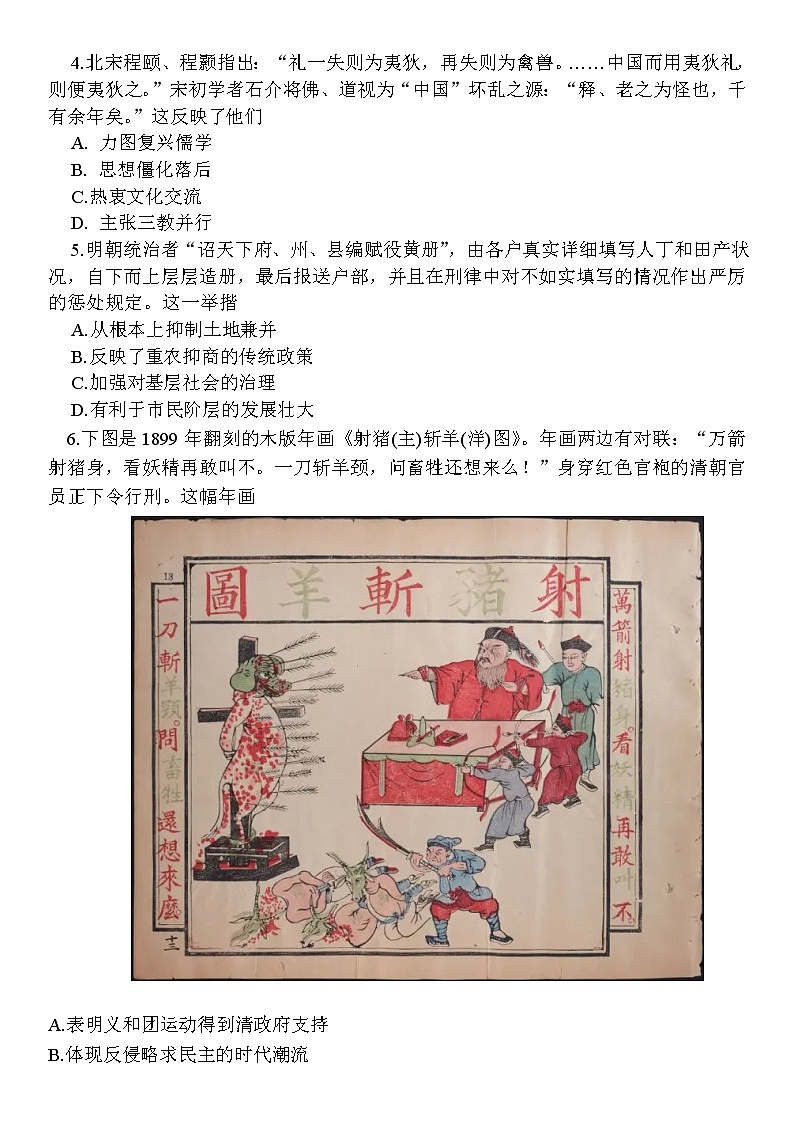 4.北宋程颐、程颢指出：“礼一失则为夷狄，再失则为禽兽。……中国而用夷狄礼，
则便夷狄之。”宋初学者石介将佛、道视为“中国”坏乱之源：“释、老之为怪也，千
有余年矣。”这反映了他们
A. 力图复兴儒学
B. 思想僵化落后
C.热衷文化交流
D. 主张三教并行
5.明朝统治者“诏天下府、州、县编赋役黄册”，由各户真实详细填写人丁和田产状
况，自下而上层层造册，最后报送户部，并且在刑律中对不如实填写的情况作出严厉
的惩处规定。这一举措
A.从根本上抑制土地兼并
B.反映了重农抑商的传统政策
C.加强对基层社会的治理
D.有利于市民阶层的发展壮大
6.下图是1899 年翻刻的木版年画《射猪(主)斩羊(洋)图》。年画两边有对联：“万箭
射猪身，看妖精再敢叫不。一刀斩羊颈，问畜牲还想来么！”身穿红色官袍的清朝官
员正下令行刑。这幅年画
圖羊斬豬射
13
萬箭射豬身。看妖精再敢叫不
一刀斬羊頸。問畜牲還想來麼
十三
A.表明义和团运动得到清政府支持
B.体现反侵略求民主的时代潮流